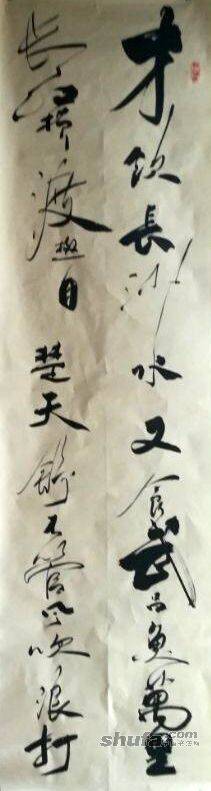 才饮長沙水又食武昌魚萬里
长江横渡極目楚天舒不管风吹浪打